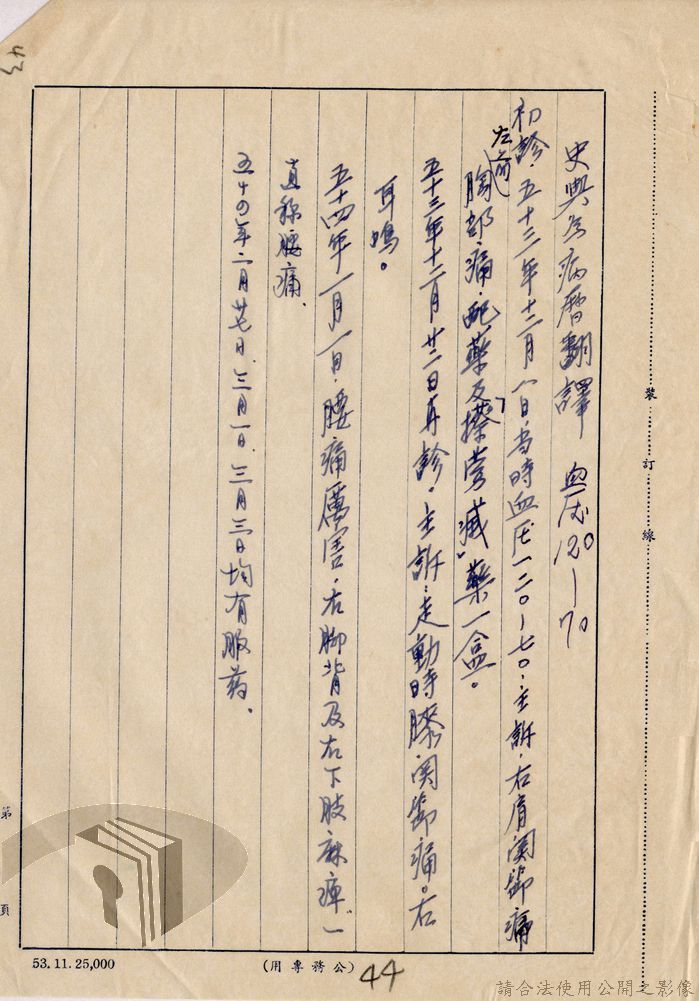 史與為病曆翻譯 血压120—70
初診.五十三年十二月一日,当時血压一二0-七0.主訴.右肩関節痛
左前胸部痛.配藥及搽「劳减」藥一盒。
五十三年十二月廿二日再診.主訴:走動時膝関節痛。右
耳鳴。
五十四年一月一日.腰痛厲害.右脚背及右下肢麻痺。一
直称腰痛.
五十四年二月廿七日.三月一日.三月三日均有服药.
裝訂線
第 頁
53.11.25,000
(用專務公)
44
43
請合法使用公開之影像